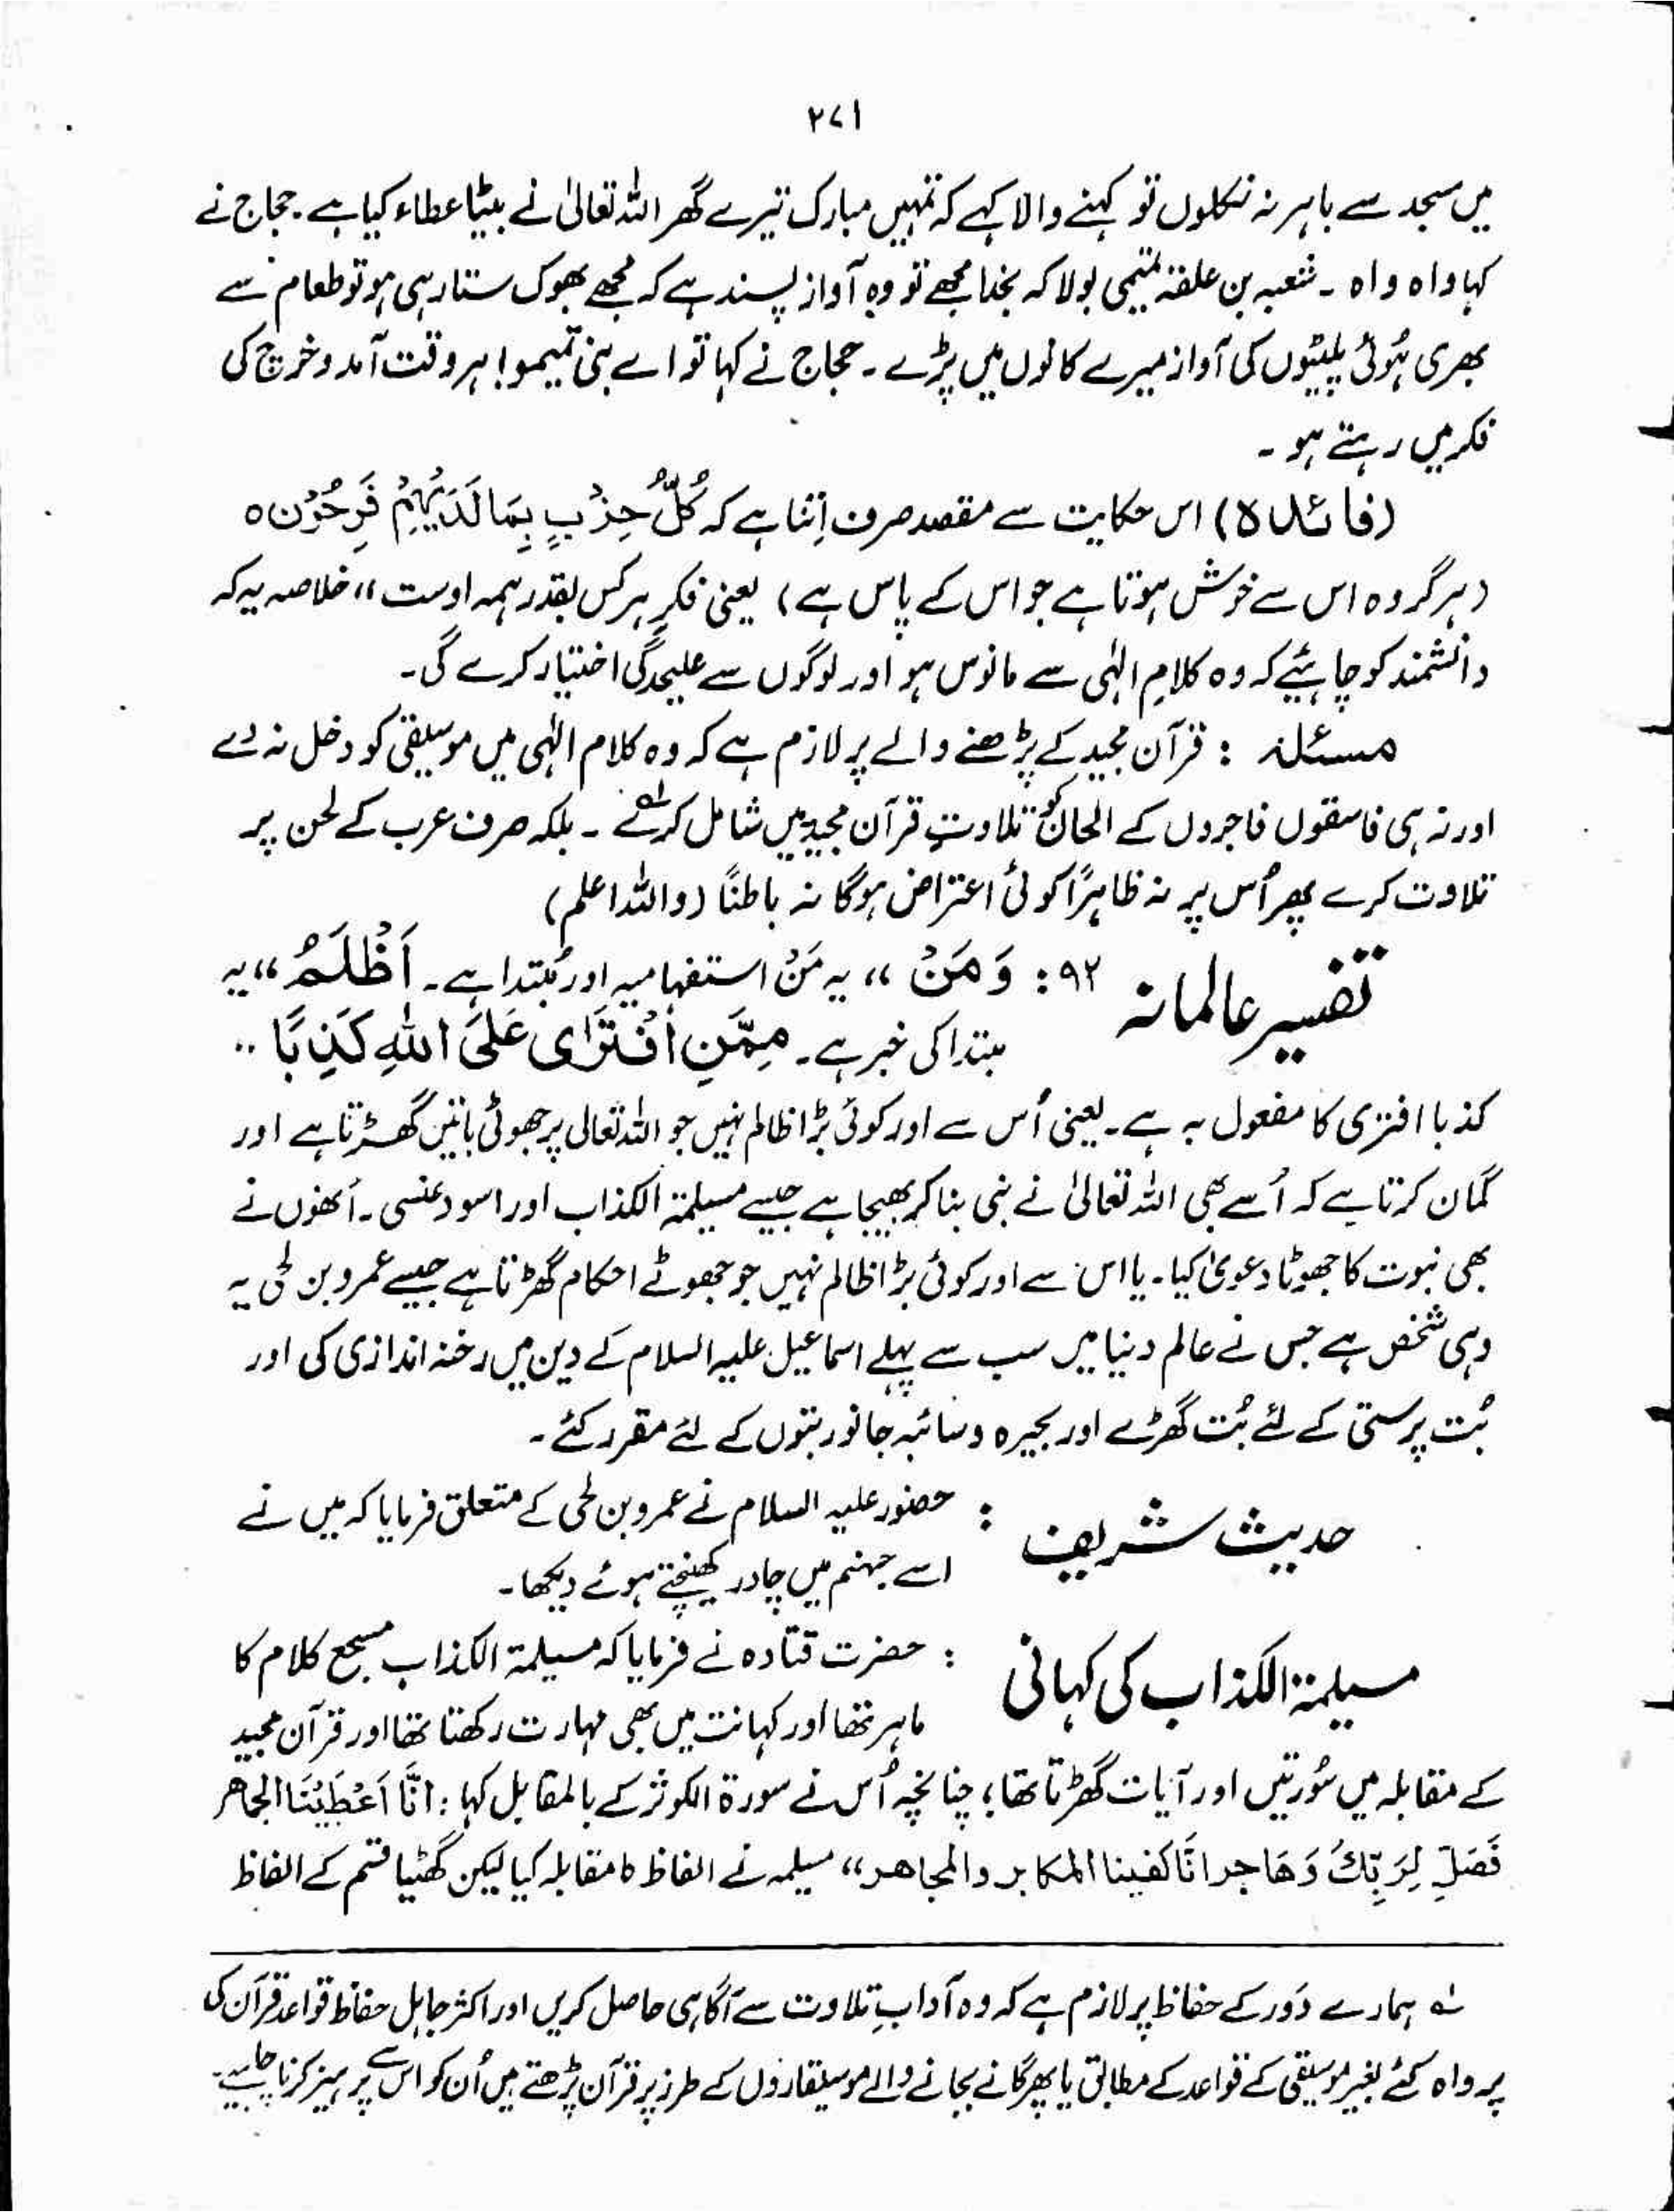 ۲۷۱
میں سجد سے باہر نہ نکلوں تو کہنے والا کہے کہ تمہیں مبارک تیرے گھر اللہ تعالیٰ نے بیٹا عطاء کیا ہے۔ حجاج نے
کہا واہ واہ ۔ شعبہ بن علقمہ تمیمی بولا کہ بخدا مجھے تو وہ آواز پسند ہے کہ مجھے بھوک ستا رہی ہو تو طعام سے
بھری ہُوئی پلیٹوں کی آواز میرے کانوں میں پڑے ۔ حجاج نے کہا تو اے بنی تمیمو! ہر وقت آمد و خرچ کی
فکر میں رہتے ہو ۔
(فائدہ) اس حکایت سے مقصد صرف اِتنا ہے کہ کُلُّ حِزْبٍ بِمَا لَدَیْہِمْ فَرِحُوْنَ ہ
(ہر گروہ اس سے خوش ہوتا ہے جو اس کے پاس ہے) یعنی فکرِ ہر کس بقدر ہمہ اوست ،، خلاصہ یہ کہ
دانشمند کو چاہئیے کہ وہ کلامِ الہٰی سے مانوس ہو اور لوگوں سے علیحدگی اختیار کرے گی۔
مسئلہ : قرآن مجید کے پڑھنے والے پر لازم ہے کہ وہ کلام الہٰی میں موسیقی کو دخل نہ دے
اور نہ ہی فاسقوں فاجروں کے الحان کو تلاوتِ قرآن مجید میں شامل کرے لہ ۔ بلکہ صرف عرب کے لحن پر
تلاوت کرے پھر اُس پر نہ ظاہرًا کوئی اعتراض ہوگا نہ باطنًا (واللہ اعلم)
تفسیر عالمانہ ۹۲ : وَمَنْ ،، یہ مَنْ استفہامیہ اور مُبتدا ہے۔ اَظْلَمُ ،، یہ
مبتدا کی خبر ہے۔ مِمَّنِ افْتَرٰی عَلَی اللّٰہِ کَذِبًا ..
کذبا افتریٰ کا مفعول بہ ہے۔ یعنی اُس سے اور کوئی بڑا ظالم نہیں جو اللہ تعالیٰ پر جھوٹی باتیں گھڑتا ہے اور
گمان کرتا ہے کہ اُسے بھی اللہ تعالیٰ نے نبی بنا کر بھیجا ہے جیسے مسیلمۃ الکذاب اور اسود عنسی۔ اُنھوں نے
بھی نبوت کا جھوٹا دعویٰ کیا۔ یا اس سے اور کوئی بڑا ظالم نہیں جو جھوٹے احکام گھڑتا ہے جیسے عمرو بن لحی یہ
وہی شخص ہے جس نے عالم دنیا میں سب سے پہلے اسماعیل علیہ السلام کے دین میں رخنہ اندازی کی اور
بُت پرستی کے لئے بُت گھڑے اور بحیرہ و سائبہ جانور بتوں کے لئے مقرر کئے ۔
حدیث شریف : حضور علیہ السلام نے عمرو بن لحی کے متعلق فرمایا کہ میں نے
اسے جہنم میں چادر کھینچتے ہوئے دیکھا۔
مسیلمۃ الکذاب کی کہانی : حضرت قتادہ نے فرمایا کہ مسیلمۃ الکذاب مسجع کلام کا
ماہر تھا اور کہانت میں بھی مہارت رکھتا تھا اور قرآن مجید
کے مقابلہ میں سُورتیں اور آیات گھڑتا تھا؛ چنانچہ اُس نے سورۃ الکوثر کے بالمقابل کہا : انَّا اَعْطَیْنَا الجاھر
فَصَلِّ لِرَبِّكَ وَھَاجر انَّا کفینا المکابر والمجاھر ،، مسیلمہ نے الفاظ کا مقابلہ کیا لیکن گھٹیا قسم کے الفاظ
لہ ہمارے دَور کے حفاظ پر لازم ہے کہ وہ آدابِ تلاوت سے آگاہی حاصل کریں اور اکثر جاہل حفاظ قواعد قرآن کی
پرواہ کئے بغیر موسیقی کے قواعد کے مطابق یا پھر گانے بجانے والے موسیقاروں کے طرز پر قرآن پڑھتے ہیں اُن کو اس سے پرہیز کرنا چاہیے۔